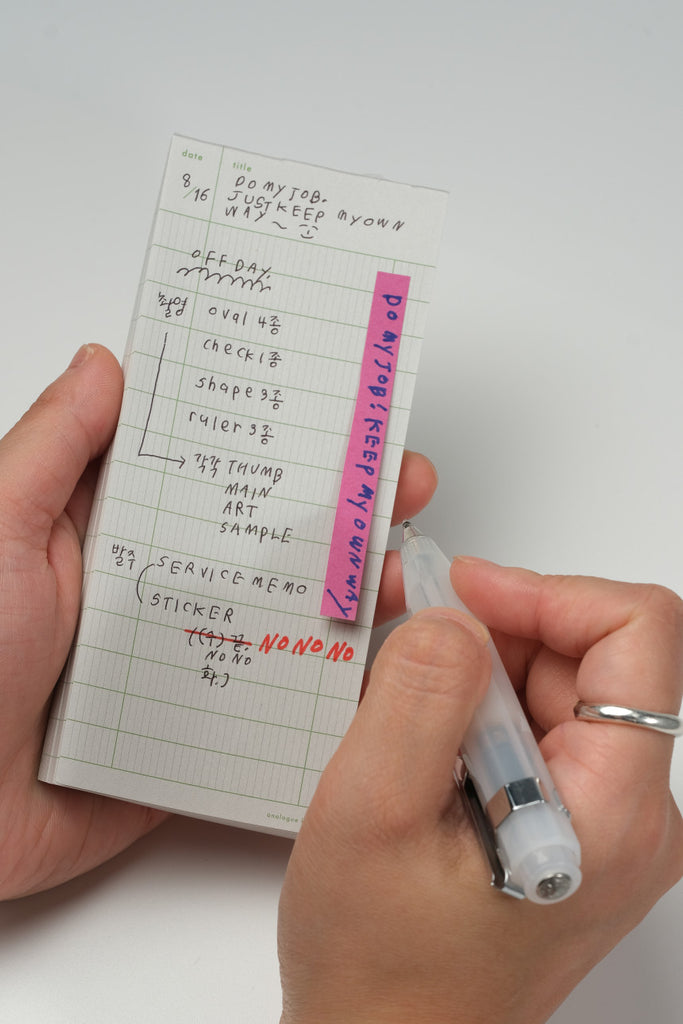 date title
8/16 DO MY JOB.
JUST KEEP MY OWN
WAY ~
OFF DAY.
촬영 oval 4종
check 1종
shape 3종
ruler 3종
각각 THUMB
MAIN
ART
SAMPLE
발주 SERVICE MEMO
STICKER
NO NO NO
NO NO
DO MY JOB! KEEP MY OWN WAY
analogue